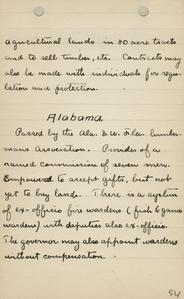 agricultural lands in 80 acre tracts
and to sell timber, etc. Contracts may
also be made with individuals for regu-
lation and protection.
Alabama.
Passed by the Ala. & W. Fla. Lumber-
mans Association. Provides of a
named commission of seven men.
Empowered to accept gifts, but not
yet to buy lands. There is a system
of ex-officio fire wardens (fish & game
wardens) with deputies also ex-officio.
The governor may also appoint wardens
without compensation.
54